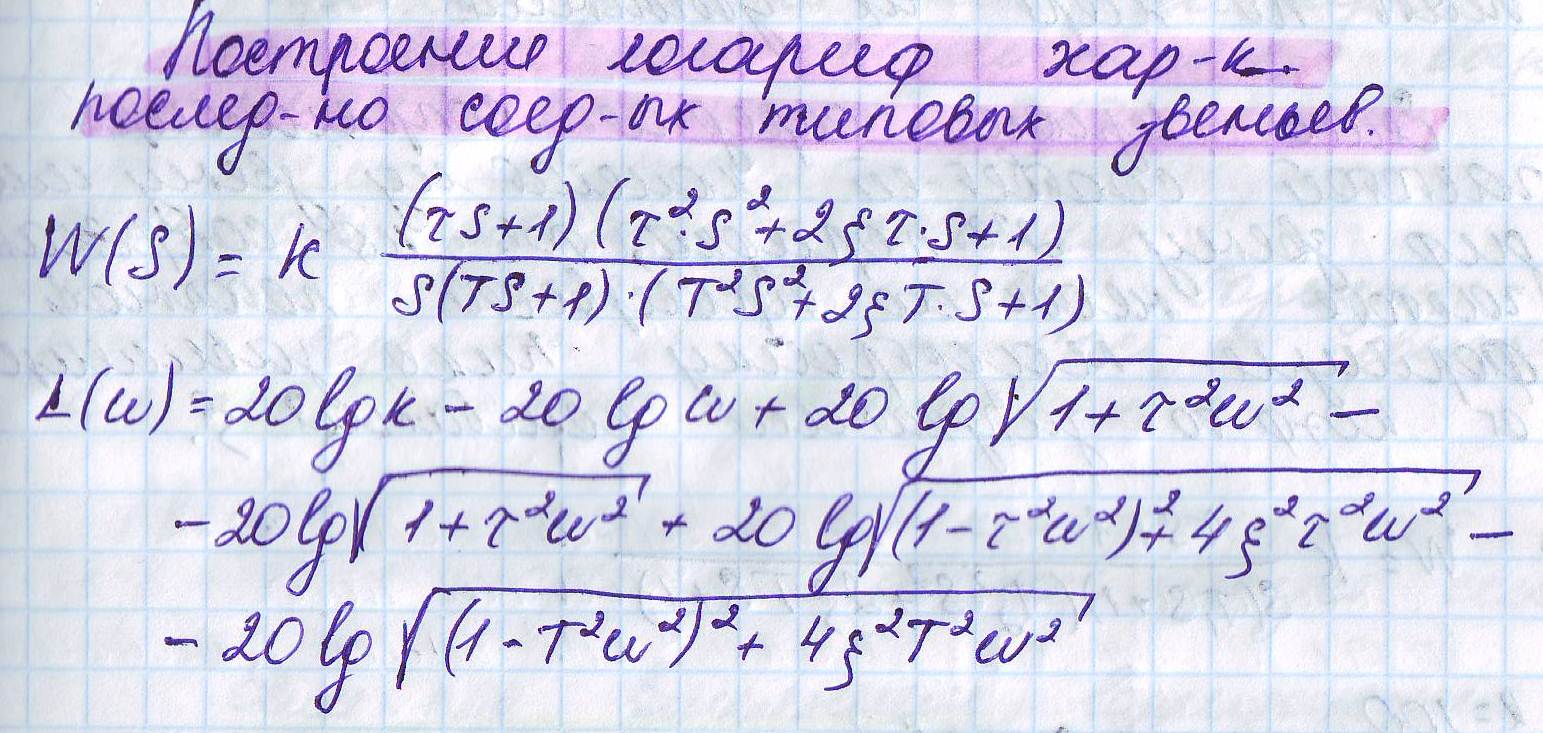 Построение логариф хар-к.
послед-но соед-ых типовых звеньев.
W(S) = K (τS+1)(τ²·S²+2ξτ·S+1) / S(TS+1)·(T²S²+2ξT·S+1)
L(ω) = 20 lg K - 20 lg ω + 20 lg √(1+τ²ω²) -
- 20 lg √(1+τ²ω²) + 20 lg √((1-τ²ω²)²+4ξ²τ²ω²) -
- 20 lg √((1-T²ω²)²+4ξ²T²ω²)